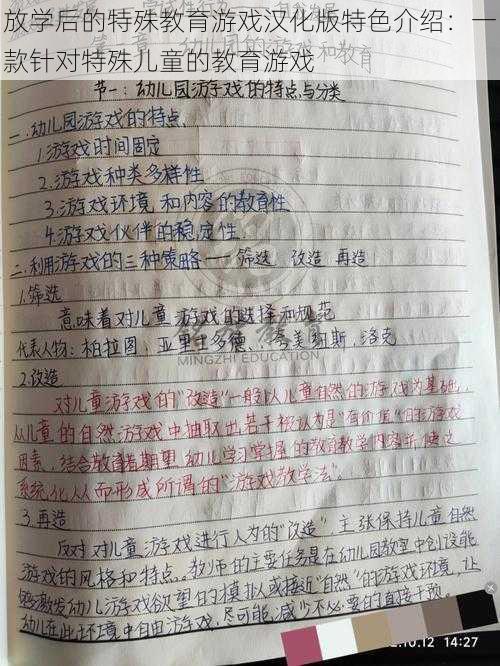 放学后的特殊教育游戏汉化版特色介绍：一
款针对特殊儿童的教育游戏
节一：幼儿园游戏的特点与分类
一.幼儿园游戏的特点.
1.游戏时间固定
2.游戏种类多样性
3.游戏环境和内容的教育性
4.游戏伙伴的稳定性.
二.利用游戏的三种策略——筛选 改造 再造
1.筛选
意味着对儿童游戏的选择和规范
教育
MINGZHI EDUCATION
代表人物：柏拉图.亚里士多德.夸美纽斯.洛克
2.改造
对儿童游戏的“改造”一般以儿童自然的游戏为基础，
从儿童的自然游戏中抽取出若干被认为是“有价值”的游戏
因素，结合教育者期望幼儿学习掌握的教育教学内容并使之
系统化从而形成所谓的“游戏教学法”。
3.再造
反对对儿童游戏进行人为的“改造”，主张保持儿童自然
游戏的风格和特点。教师的主要任务是在幼儿园教室中创设能
够激发幼儿游戏欲望的模拟或接近“自然”的游戏环境，让
幼儿在此环境中自由游戏，尽可能减少不必要的直接干预。
.10.12 14:27